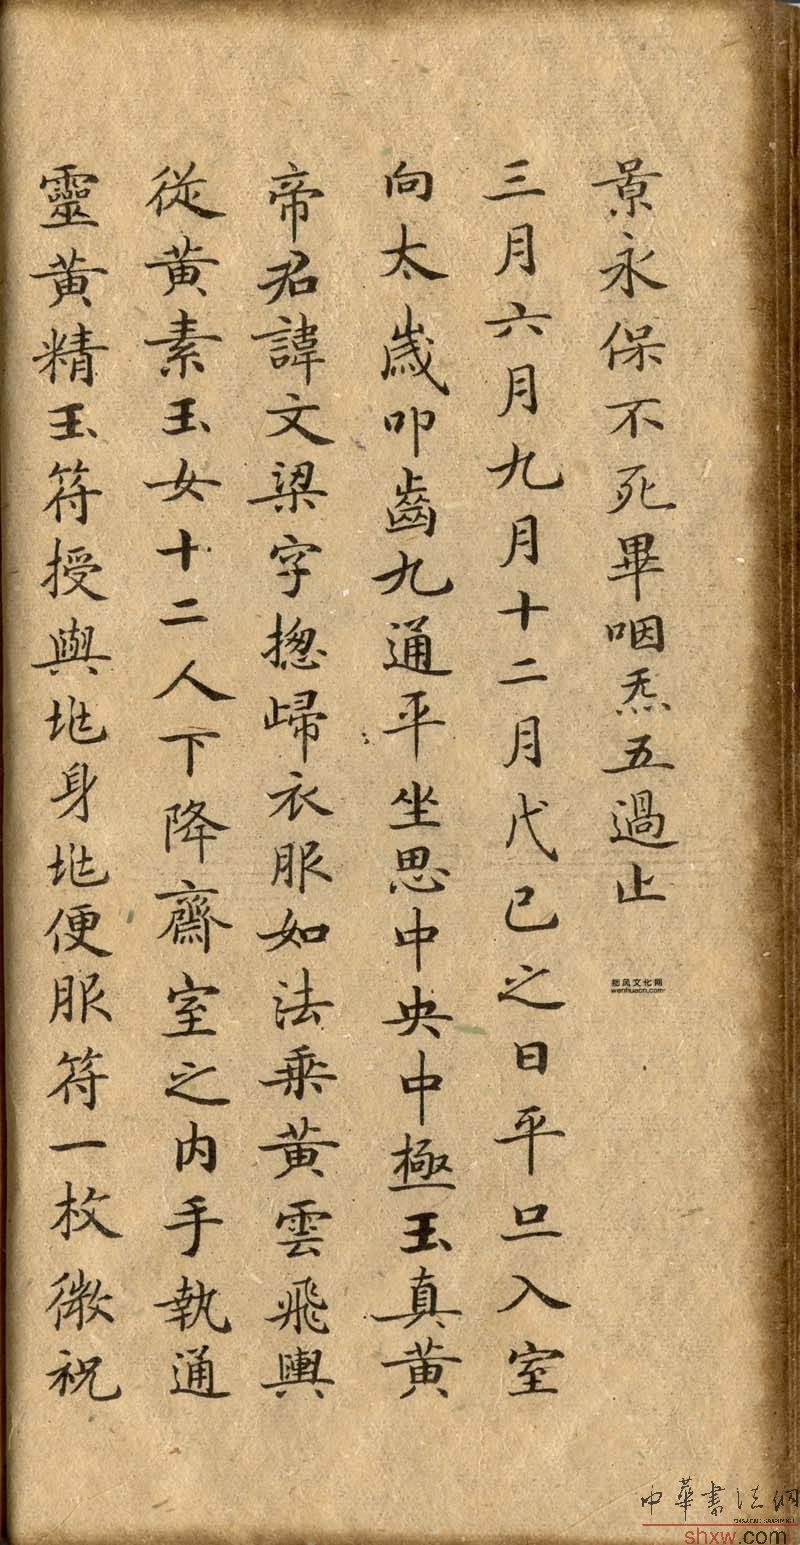 景永保不死畢咽炁五過止
三月六月九月十二月戊己之日平旦入室
向太歲叩齒九通平坐思中央中極玉真黃
帝君諱文梁字揔歸衣服如法乘黃雲飛輿
從黃素玉女十二人下降齋室之内手執通
靈黃精玉符授與兆身兆便服符一枚微祝
拙风文化网
wenhuacn.com
中華書法網
shxw.com